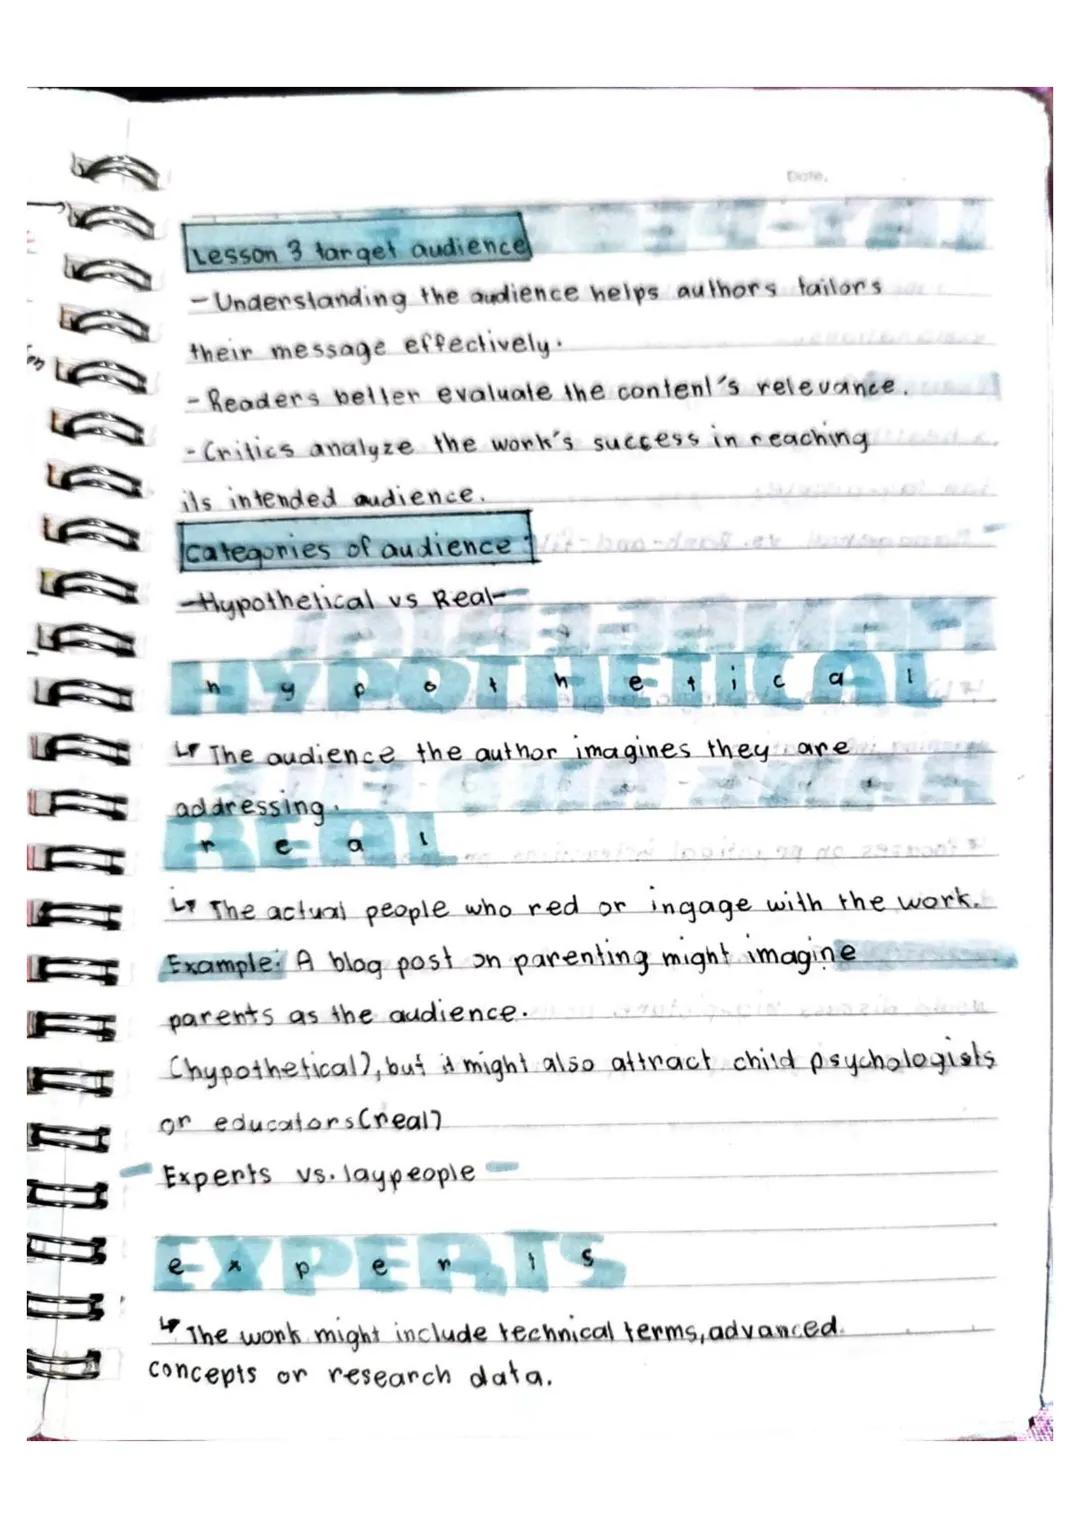 Date.
Lesson 3 target audience
- Understanding the audience helps authors tailors
their message effectively.
- Readers better evaluate the content's relevance.
- Critics analyze the work's success in reaching
its intended audience.
Categories of audience:
- Hypothetical vs Real -
HYPOTHETICAL
hypothetical
↳ The audience the author imagines they are
addressing.
REAL
real
↳ The actual people who red or ingage with the work.
Example: A blog post on parenting might imagine
parents as the audience.
(hypothetical), but it might also attract child psychologists
or educators (real)
- Experts vs. laypeople -
EXPERTS
experts
↳ The work might include technical terms, advanced
concepts or research data.